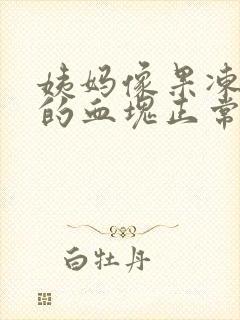 姨妈像果冻
的血块正常
白牡丹